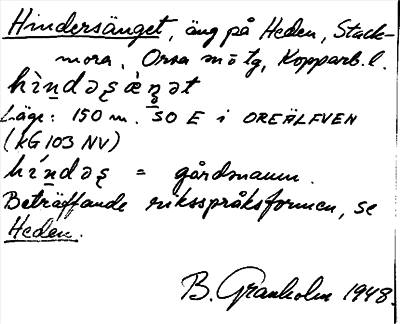 Hindersänget, äng på Heden, Stack-
mora, Orsa sn o tg, Kopparb. l.
Läge: 150 m. SO E i OREÄLFVEN
(KG 103 NV)
= gårdsnamn.
Beträffande riksspråksformen, se
Heden.
B. Granholm 1948.